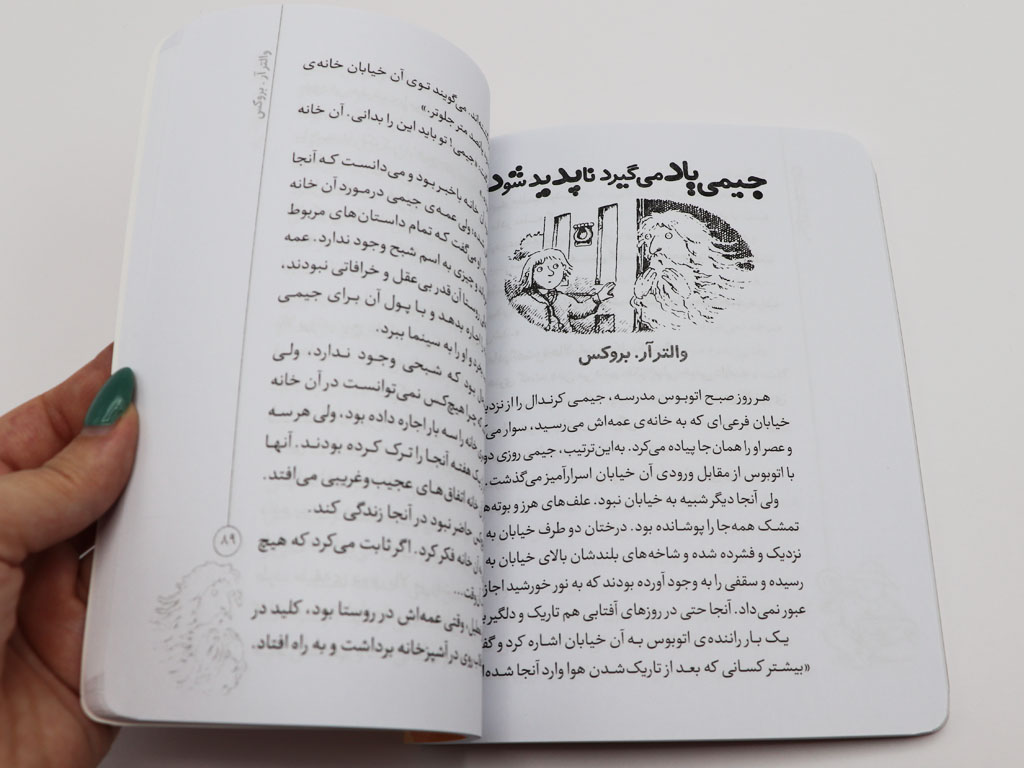 جیمی یاد می‌گیرد ناپدید شود
والتر آر. بروکس
هر روز صبح اتوبوس مدرسه، جیمی کرندال را از
خیابان فرعی‌ای که به خانه‌ی عمه‌اش می‌رسید، سوار
و عصر او را همان‌جا پیاده می‌کرد. به‌این‌ترتیب، جیمی روزی
با اتوبوس از مقابل ورودی آن خیابان اسرارآمیز می‌گذشت.
ولی آنجا دیگر شبیه به خیابان نبود. علف‌های هرز و
تمشک همه‌جا را پوشانده بود. درختان دو طرف خیابان به
نزدیک و فشرده شده و شاخه‌های بلندشان بالای خیابان به
رسیده و سقفی را به وجود آورده بودند که به نور خورشید
عبور نمی‌داد. آنجا حتی در روزهای آفتابی هم تاریک و
یک بار راننده‌ی اتوبوس به آن خیابان اشاره کرد و
«بیشتر کسانی که بعد از تاریک‌شدن هوا وارد آنجا
والتر آر. بروکس
می‌گویند توی آن خیابان خانه‌ی
متر جلوتر.»
جیمی! تو باید این را بدانی. آن خانه
خانه باخبر بود و می‌دانست که آنجا
ولی عمه‌ی جیمی درمورد آن خانه
می‌گفت که تمام داستان‌های مربوط
چیزی به اسم شبح وجود ندارد. عمه
آن‌قدر بی‌عقل و خرافاتی نبودند،
اجاره بدهد و با پول آن برای جیمی
و او را به سینما ببرد.
بود که شبحی وجود ندارد، ولی
چرا هیچ‌کس نمی‌توانست در آن خانه
خانه را سه بار اجاره داده بود، ولی هر سه
هفته آنجا را ترک کرده بودند. آنها
خانه اتفاق‌های عجیب‌وغریبی می‌افتد.
حاضر نبود در آنجا زندگی کند.
آن خانه فکر کرد. اگر ثابت می‌کرد که هیچ
وقتی عمه‌اش در روستا بود، کلید در
روی در آشپزخانه برداشت و به راه افتاد.
۸۹